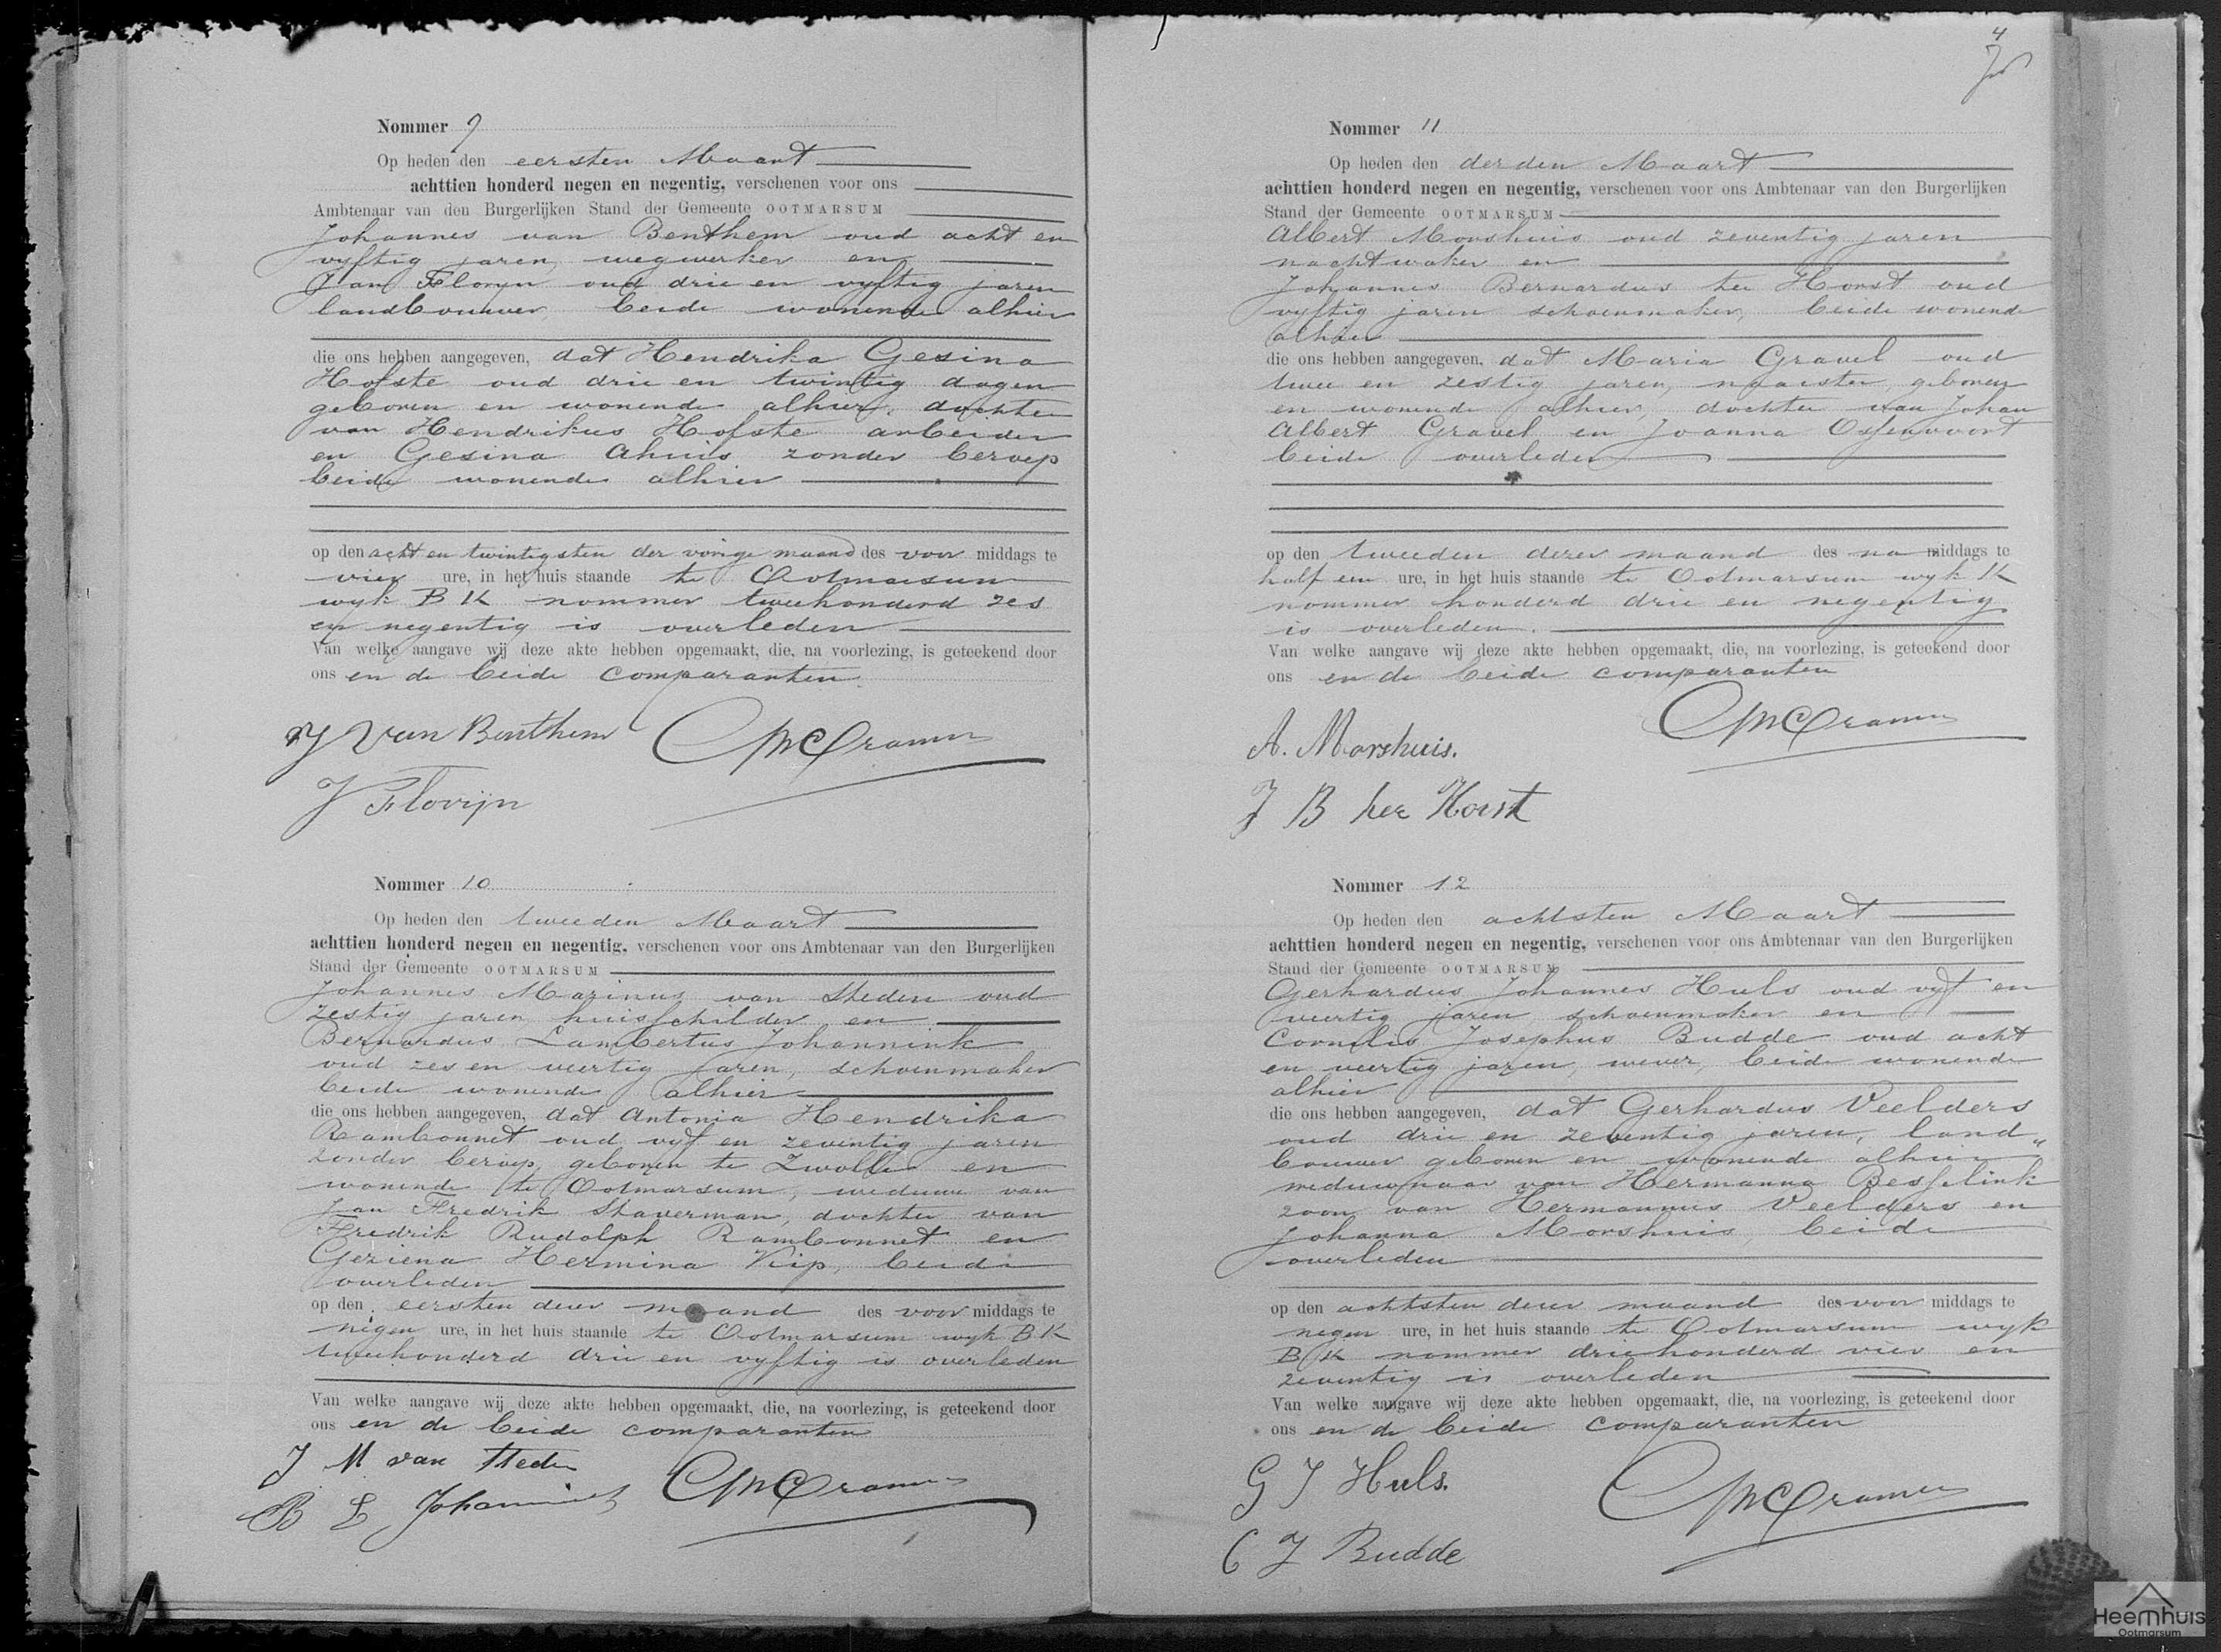 Nommer 9
Op heden den eersten Maart
achttien honderd negen en negentig, verschenen voor ons
Ambtenaar van den Burgerlijken Stand der Gemeente OOTMARSUM
Johannes van Benthem oud acht en
vyftig jaren, wegwerker en
Jan Floryn oud drie en vyftig jaren
landbouwer, beide wonende alhier
die ons hebben aangegeven, dat Hendrika Gesina
Hofste oud drie en twintig dagen
geboren en wonende alhier, dochter
van Hendrikus Hofste arbeider
en Gesina Ahuis zonder beroep
beide wonende alhier
op den acht en twintigsten der vorige maand des voor middags te
vier ure, in het huis staande te Ootmarsum
wyk B K nommer tweehonderd zes
en negentig is overleden
Van welke aangave wij deze akte hebben opgemaakt, die, na voorlezing, is geteekend door
ons en de beide comparanten.
J Van Benthem
CMCramer
J Florijn
Nommer 10
Op heden den tweeden Maart
achttien honderd negen en negentig, verschenen voor ons Ambtenaar van den Burgerlijken
Stand der Gemeente OOTMARSUM
Johannes Marinus van Steden oud
zestig jaren huisschilder en
Bernardus Lambertus Johannink
oud zes en veertig jaren, schoenmaker
beide wonende alhier
die ons hebben aangegeven, dat Antonia Hendrika
Rambonnet oud vyf en zeventig jaren
zonder beroep, geboren te Zwolle en
wonende te Ootmarsum, weduwe van
Jan Fredrik Staverman, dochter van
Fredrik Rudolph Rambonnet en
Geziena Hermina Kip, beide
overleden
op den eersten dezer maand des voor middags te
negen ure, in het huis staande te Ootmarsum wyk B K
tweehonderd drie en vyftig is overleden
Van welke aangave wij deze akte hebben opgemaakt, die, na voorlezing, is geteekend door
ons en de beide comparanten
J M van Steden
B L Johannink
CMCramer
4
Nommer 11
Op heden den derden Maart
achttien honderd negen en negentig, verschenen voor ons Ambtenaar van den Burgerlijken
Stand der Gemeente OOTMARSUM
Albert Morshuis oud zeventig jaren
nachtwaker en
Johannes Bernardus ter Horst oud
vyftig jaren schoenmaker, beide wonende
alhier
die ons hebben aangegeven, dat Maria Gravel oud
twee en zestig jaren, naaister, geboren
en wonende alhier, dochter van Johan
Albert Gravel en Joanna Ossenvoort
beide overleden
op den tweeden dezer maand des na middags te
half een ure, in het huis staande te Ootmarsum wyk K
nommer honderd drie en negentig
is overleden.
Van welke aangave wij deze akte hebben opgemaakt, die, na voorlezing, is geteekend door
ons en de beide comparanten
CMCramer
A. Morshuis.
J B ter Horst
Nommer 12
Op heden den achtsten Maart
achttien honderd negen en negentig, verschenen voor ons Ambtenaar van den Burgerlijken
Stand der Gemeente OOTMARSUM
Gerhardus Johannes Huls oud vyf en
veertig jaren schoenmaker en
Cornelis Josephus Budde oud acht
en veertig jaren, wever, beide wonende
alhier
die ons hebben aangegeven, dat Gerhardus Veelders
oud drie en zeventig jaren, land„
bouwer geboren en wonende alhier
weduwnaar van Hermanna Besselink
zoon van Hermannus Veelders en
Johanna Morshuis, beide
overleden
op den achtsten dezer maand des voor middags te
negen ure, in het huis staande te Ootmarsum wyk
B K nommer driehonderd vier en
zeventig is overleden
Van welke aangave wij deze akte hebben opgemaakt, die, na voorlezing, is geteekend door
ons en de beide comparanten
G J Huls.
CMCramer
C J Budde
Heemhuis
Ootmarsum